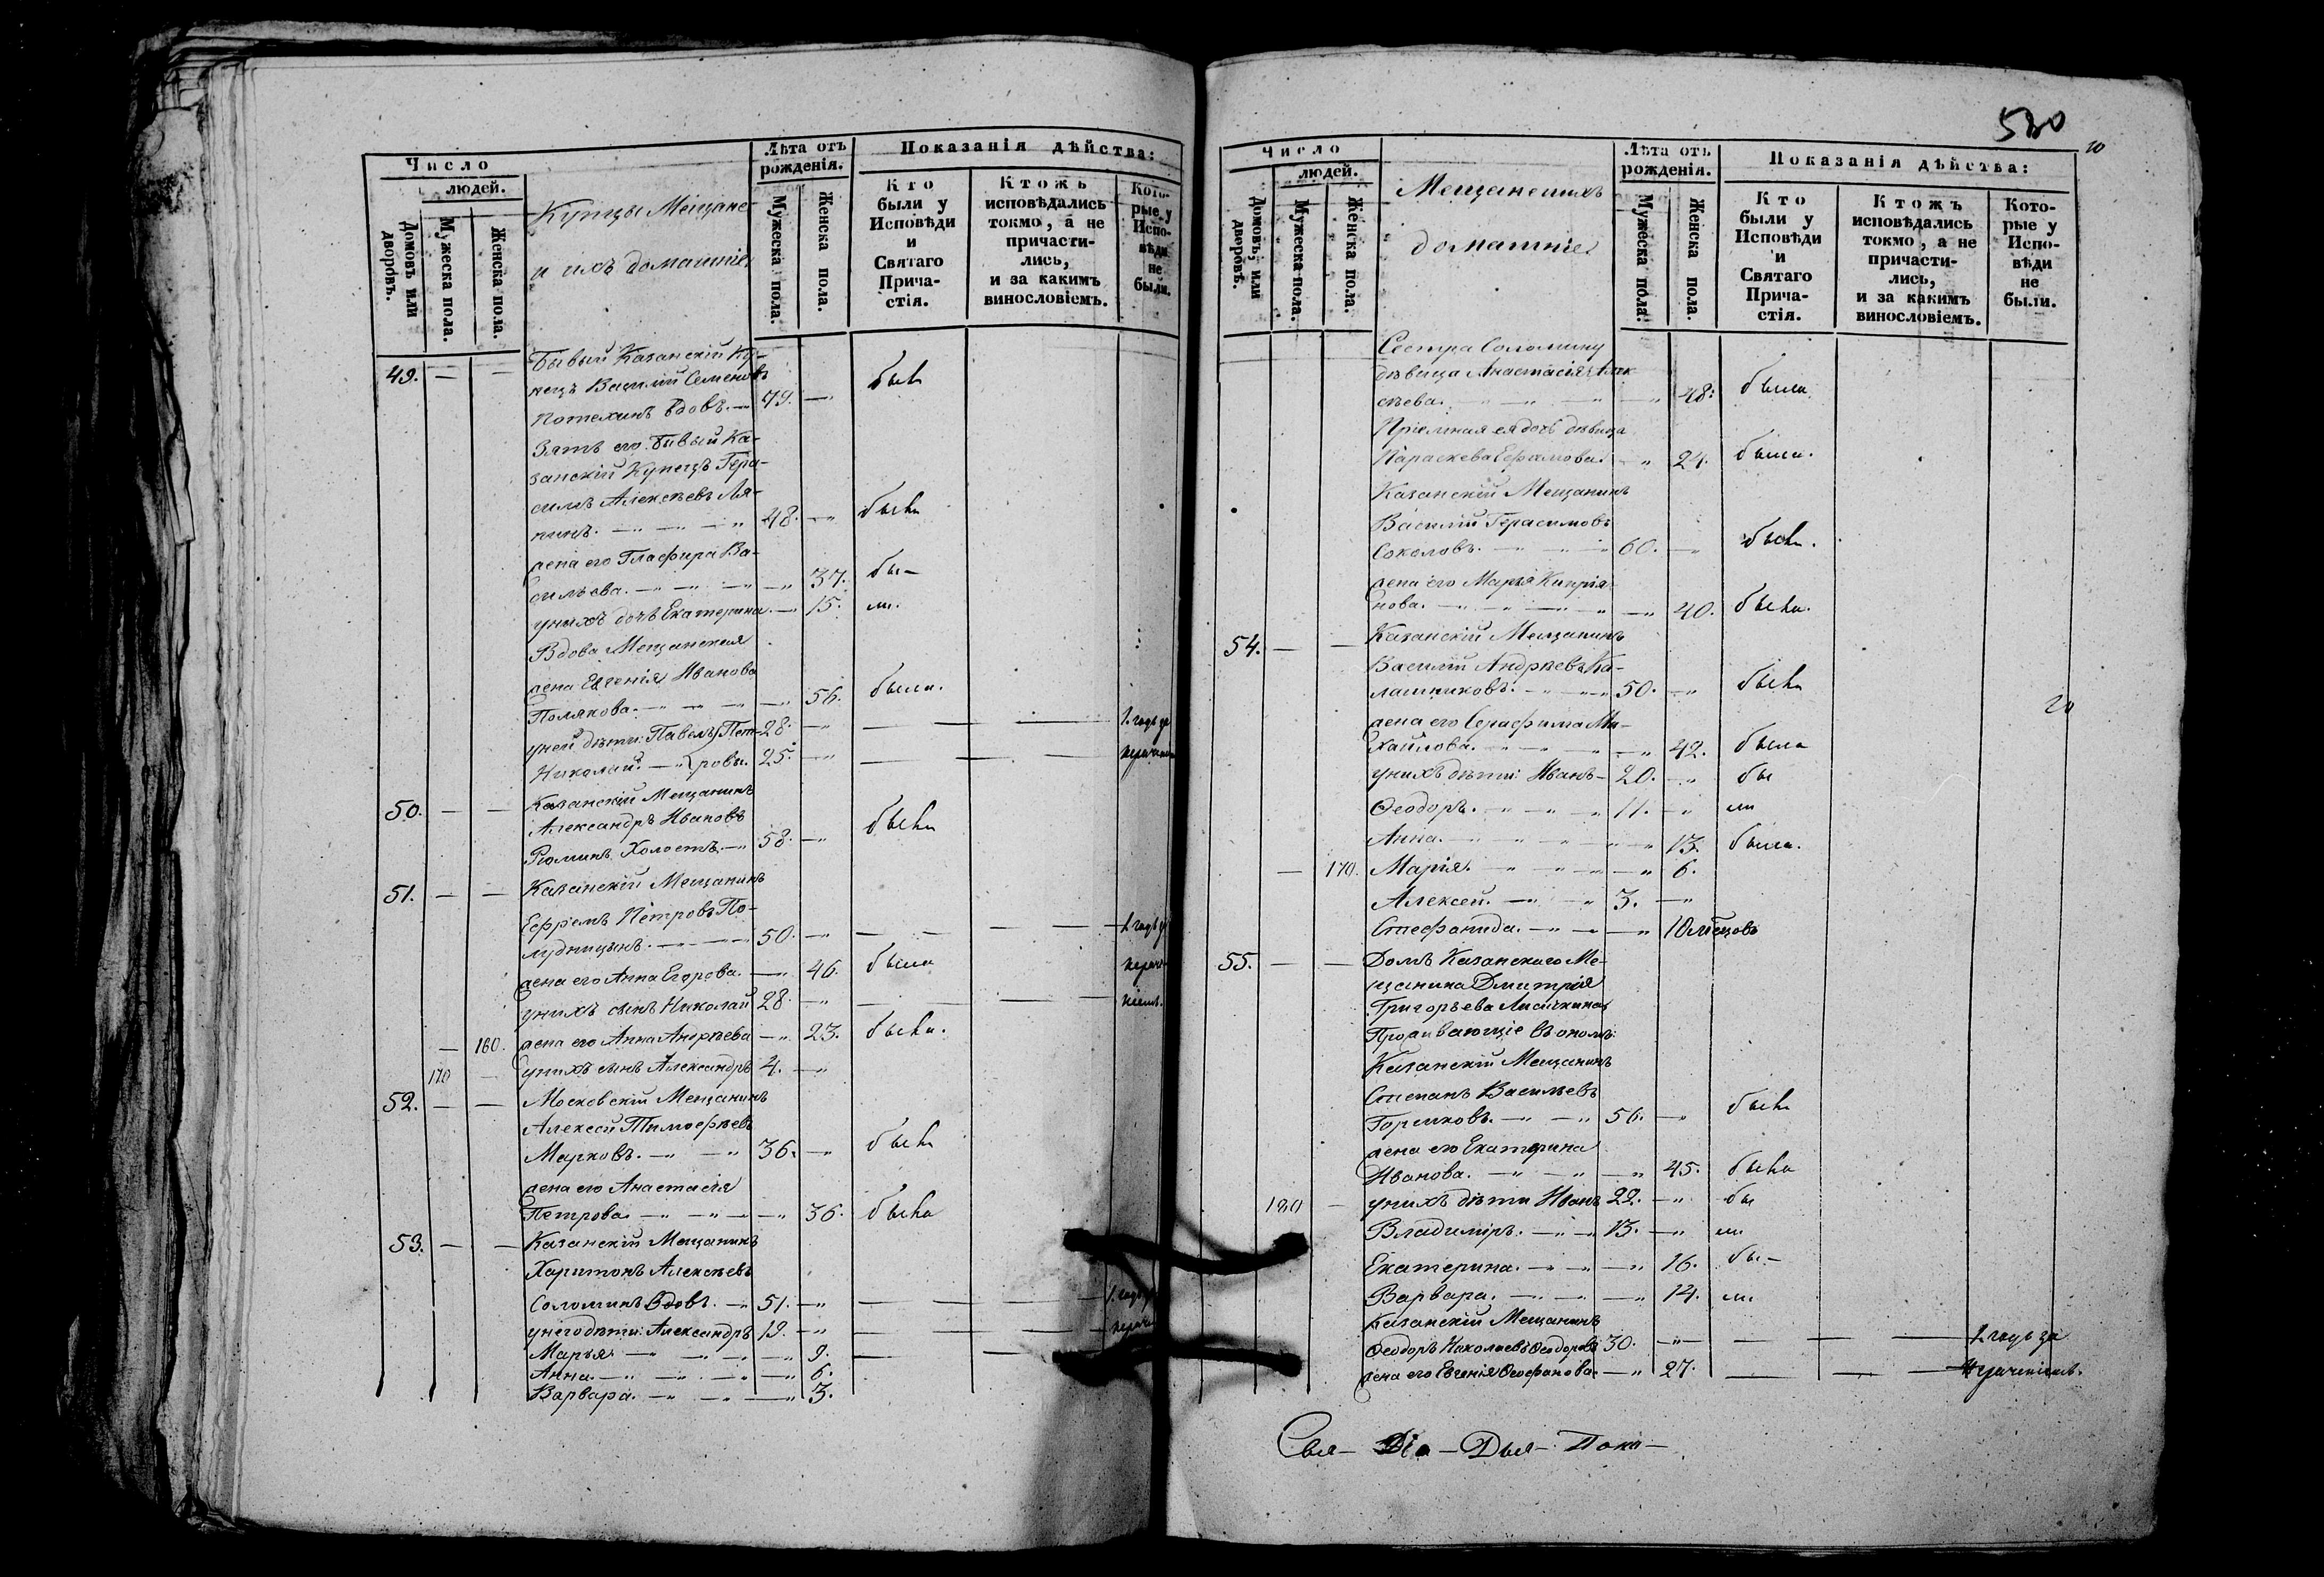 Число
людей.
Домовъ или дворовъ.
Мужеска пола.
Женска пола.
Купцы Мещане
и ихъ домашніе
Лѣта отъ
рожденія.
Мужеска пола.
Женска пола.
Показанія дѣйства:
Кто
были у
Исповѣди
и
Святаго
Прича-
стія.
Ктожъ
исповѣдались
токмо, а не
причасти-
лись,
и за какимъ
винословіемъ.
Кото-
рые у
Испо-
вѣди
не
были.
49. — — Бывый Казанскій Ку-
пецъ Василій Семеновъ
Потехинъ вдовъ. — 79. — былъ
Зять его бывый Ка-
занскій Купецъ Гера-
симъ Алексѣевъ Ля-
пинъ. — 48. — былъ
жена его Глафира Ва-
сильева. — 37. бы-
у нихъ дочь Екатерина. — 15. ли.
Вдова Мещанская
жена Евгенія Иванова
Полякова. — 56. была.
у ней дѣти: Павелъ Пет- 28. — — — 1. годъ за
Николай. — ровы. 25. — — —
50. — — Казанскій Мещанинъ
Александръ Ивановъ
Рюминъ Холостъ. — 58. — былъ
51. — — Казанскій Мещанинъ
Ефремъ Петровъ По-
лудницынъ. — 50. — — — 1. годъ за
жена его Анна Егорова. — 46. была
у нихъ сынъ Николай 28. — — —
— 160. жена его Анна Андреева — 23. была.
170 — у нихъ сынъ Александръ 4. —
52. — — Московскій Мещанинъ
Алексѣй Тимофѣевъ
Марковъ. — 36. — былъ
жена его Анастасія
Петрова. — 36. была
53. — — Казанскій Мещанинъ
Харитонъ Алексѣевъ
Соломинъ Вдовъ. — 51. — — — 1. годъ за
у него дѣти: Александръ 19. — — —
Марья — 9. — —
Анна. — 6.
Варвара. — 3.
20
Число
людей.
Домовъ, или дворовъ.
Мужеска пола.
Женска пола.
Мещане и ихъ
домашніе
Лѣта отъ
рожденія.
Мужеска пола.
Женска пола.
Показанія дѣйства:
Кто
были у
Исповѣди
и
Святаго
Прича-
стія.
Ктожъ
исповѣдались
токмо, а не
причасти-
лись,
и за какимъ
винословіемъ.
Кото-
рые у
Испо-
вѣди
не
были.
Сестра Соломину
дѣвица Анастасія Алек
сѣева. — 48. была
Пріемная ея дочь дѣвица
Параскева Ефимова. — 24. была.
Казанскій Мещанинъ
Василій Герасимовъ
Соколовъ. — 60. — былъ.
жена его Марья Кипрія-
нова. — 40. была.
54. — — Казанскій Мещанинъ
Василій Андреевъ Ка-
лашниковъ. — 50. — былъ
жена его Серафима Ми-
хайлова. — 42. была
у нихъ дѣти: Иванъ — 20. — бы
Ѳеодоръ. — 11. — ли
Анна. — 13. была.
— 170. Марія. — 6.
Алексей. — 3. —
Стефанида. — 10 мѣсцовъ
55. — — Домъ Казанскаго Ме-
щанина Дмитрія
Григорьева Лисичкина
Проживающіе въ ономъ:
Казанскій Мещанинъ
Степанъ Васильевъ
Горшковъ. — 56. — былъ
жена его Екатерина
Иванова. — 45. была
180 — у нихъ дѣти Иванъ 22. — бы
Владиміръ. — 13. — ли
Екатерина. — 16. бы-
Варвара. — 14. ли.
Казанскій Мещанинъ
Ѳеодоръ Николаевъ Ѳеодоровъ 30. — — — 1. годъ за
жена его Евгенія Ѳеофанова. — 27. — —
Свя- Діа- Дья- Пока-